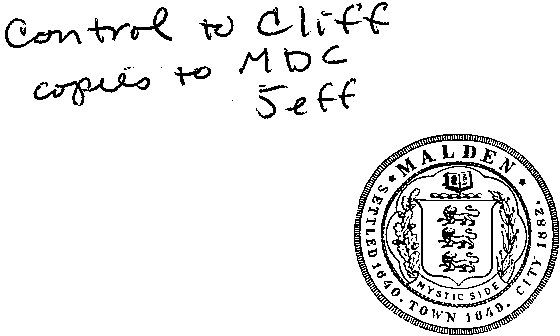 Control to Cliff
copies to MDC
Jeff
MALDEN
SETTLED 1640. TOWN 1649. CITY 1882.
MYSTIC SIDE